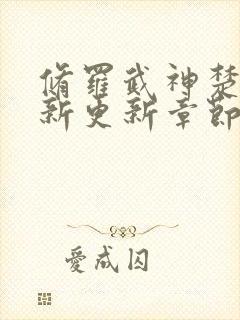 脩羅武神楚
新更新章節
愛成囚